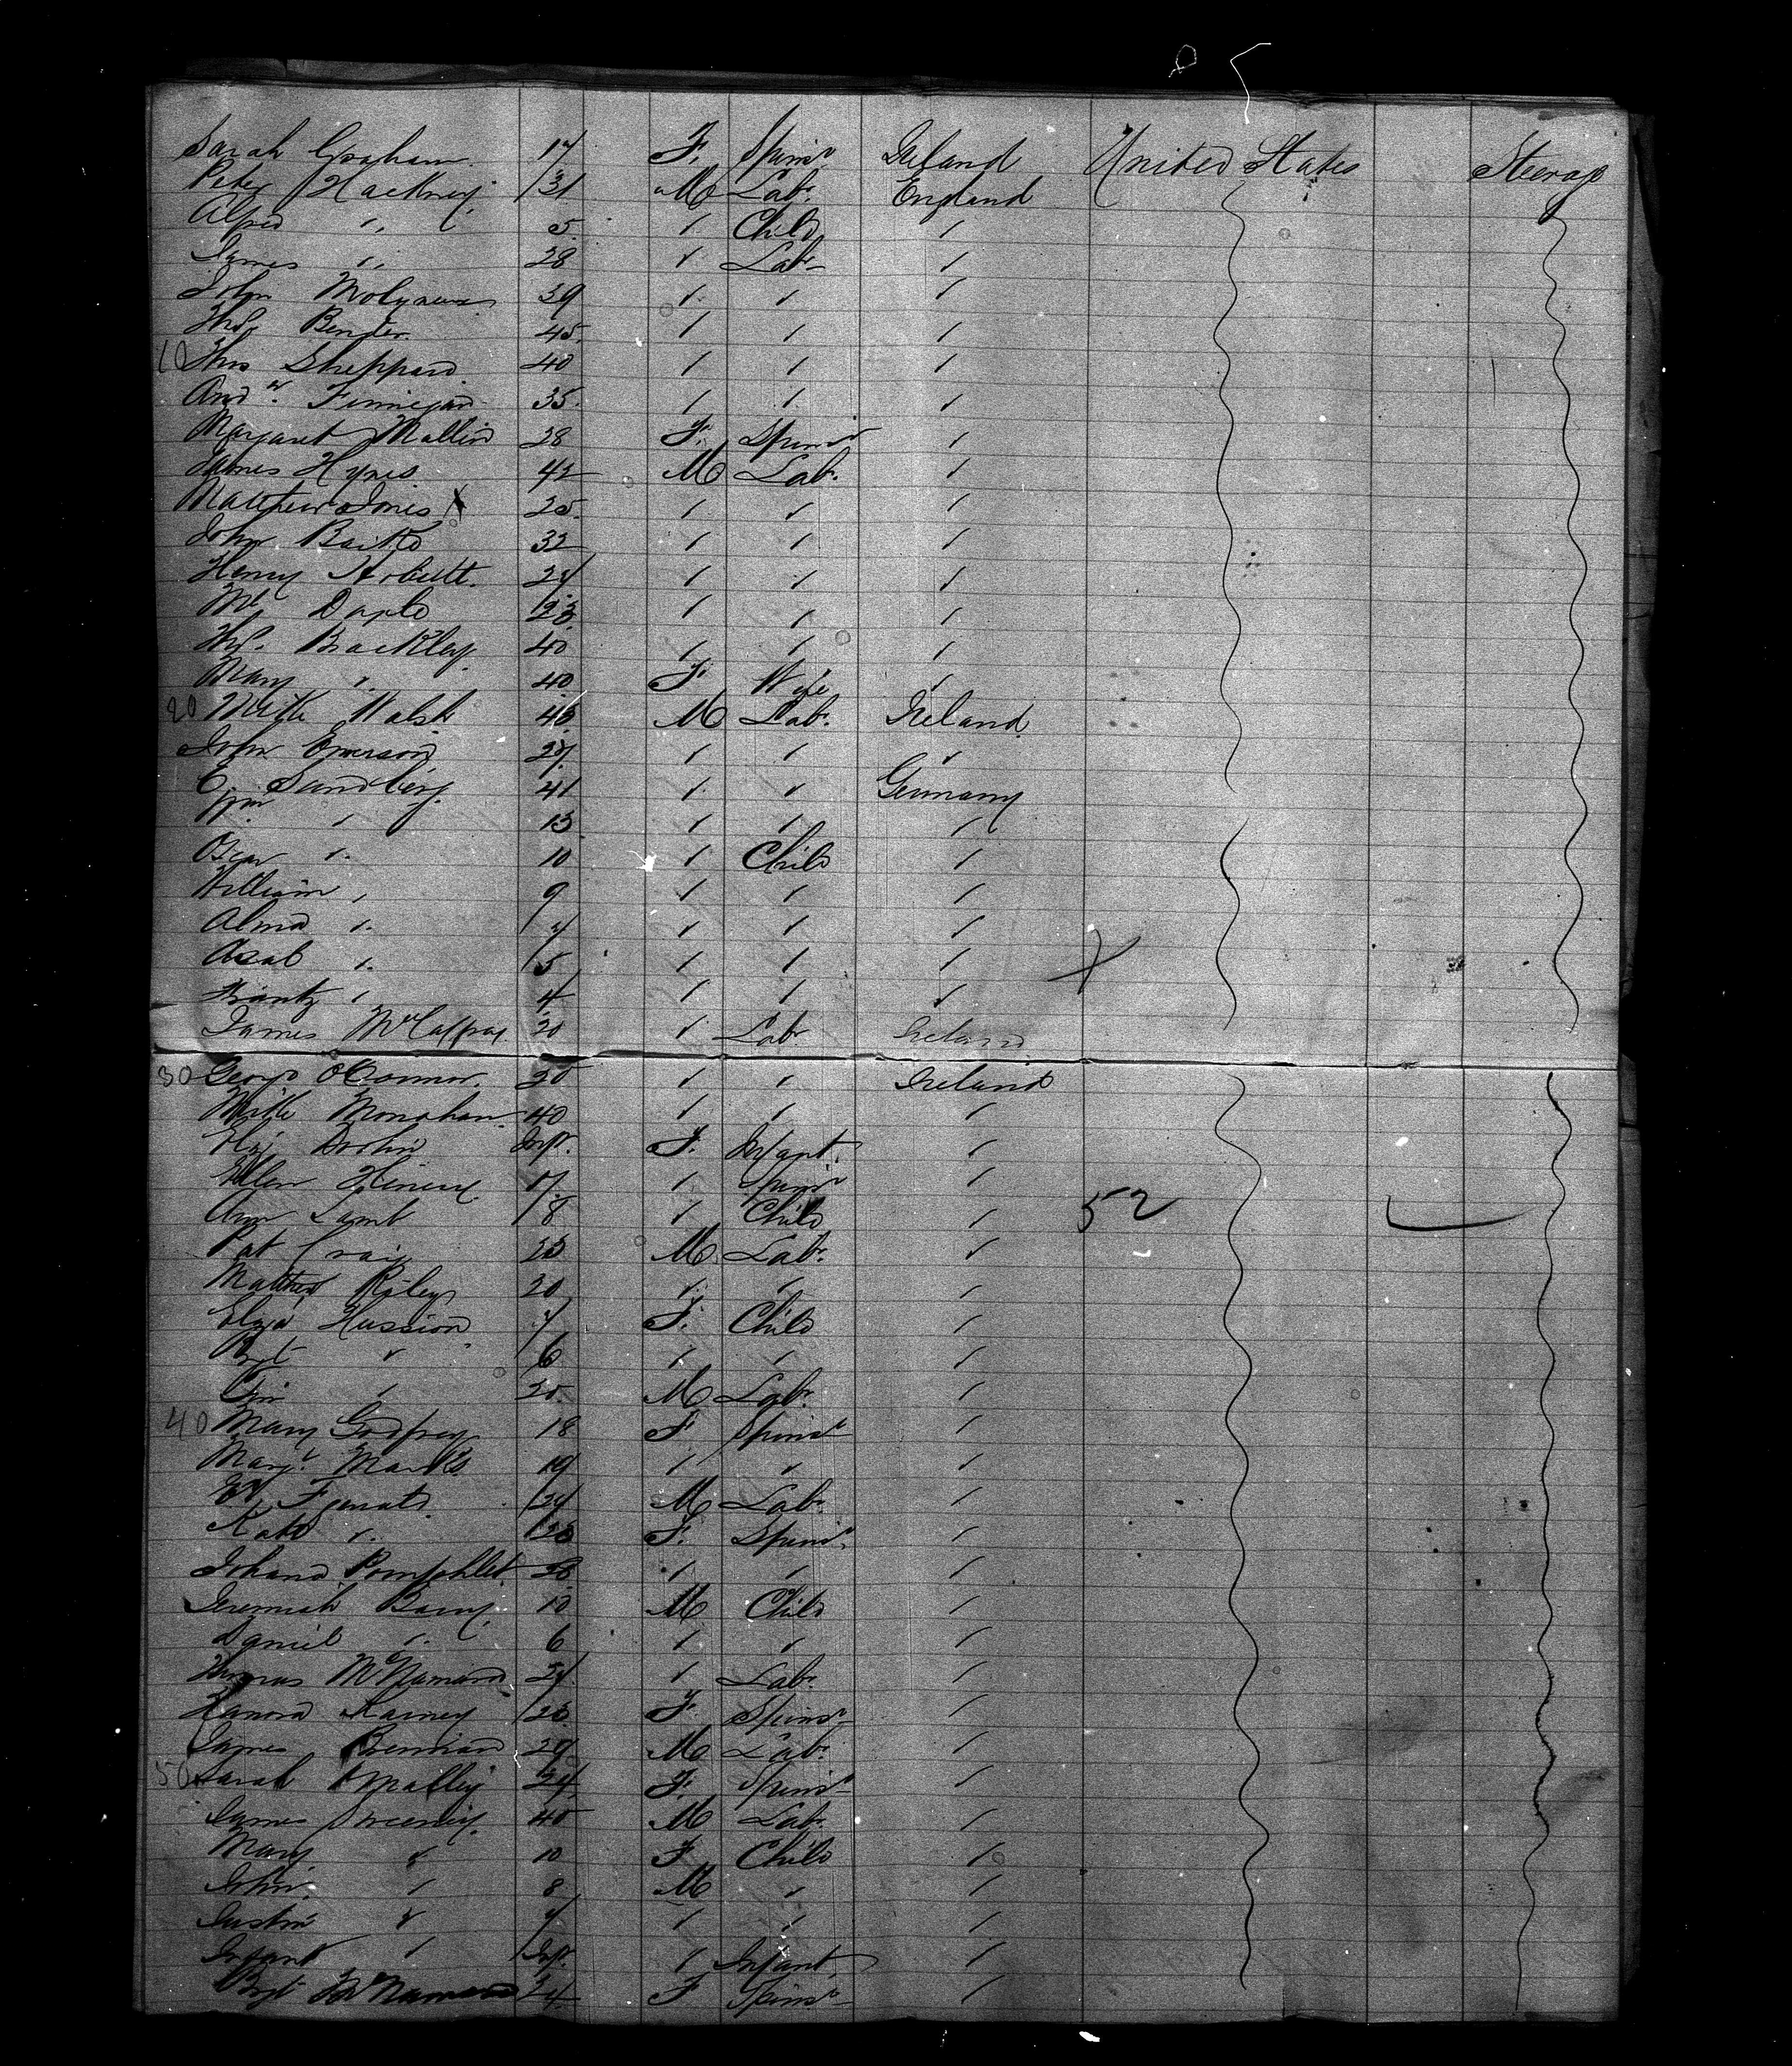 Sarah Graham 17 F. Spinsr Ireland United States Steerage
Peter Hackney 31 M Lab. England
Alfred " 5 / Child /
James " 28 / Lab /
John Molyneux 39 / / /
Thos Bender 45 / / /
10 Thos Sheppard 40 / / /
Andw. Finnegan 35 / / /
Margaret Mallin 28 F. Spinsr /
James Hynes 42 M Lab. /
Matthew Jones X 25 / / /
John 32 / / /
Henry 24 / / /
23 / / /
Thos. Brackley 40 / / /
Mary " 40 F. Wife /
20 Walsh M Lab. Ireland
John Emerson 27 / / /
C. Sandberg 41 / / Germany
/ 13 / / /
Oscar " 10 / Child /
William , 9 / / /
Alma " / / /
" 5 / / /
Frantz " 4 / / /
James McCaffray 20 / Lab Ireland
30 George O'Connor 20 / / Ireland
Monahan 40 / / /
Inft. F. Infant /
Ellen 17 / Spinsr /
Ann Lamb 8 / Child / 52
Pat Craig 23 M Lab. /
Matthew Riley 20 / / /
Eliza Hussion 7 F. Child /
Bgt " 6 / / /
" 20 M Lab. /
40 Mary Godfrey 18 F Spinsr /
Margt. Marks 19 / / /
24 M Lab. /
Kate " 23 F. Spinsr /
Johana Pomphlet 28 / / /
Jeremiah Barry 10 M Child /
Daniel " 6 / / /
Thomas McNamara 24 / Lab. /
Hanora 23 F. Spinsr /
James Brennan 29 M Lab. /
50 Sarah O'Malley 24 F. Spinsr /
James Sweeney 40 M Lab. /
Mary " 10 F Child /
John " 8 M / /
Justin " / / /
Infant " Inft. / Infant /
Bgt McNamara 24 F Spinsr /